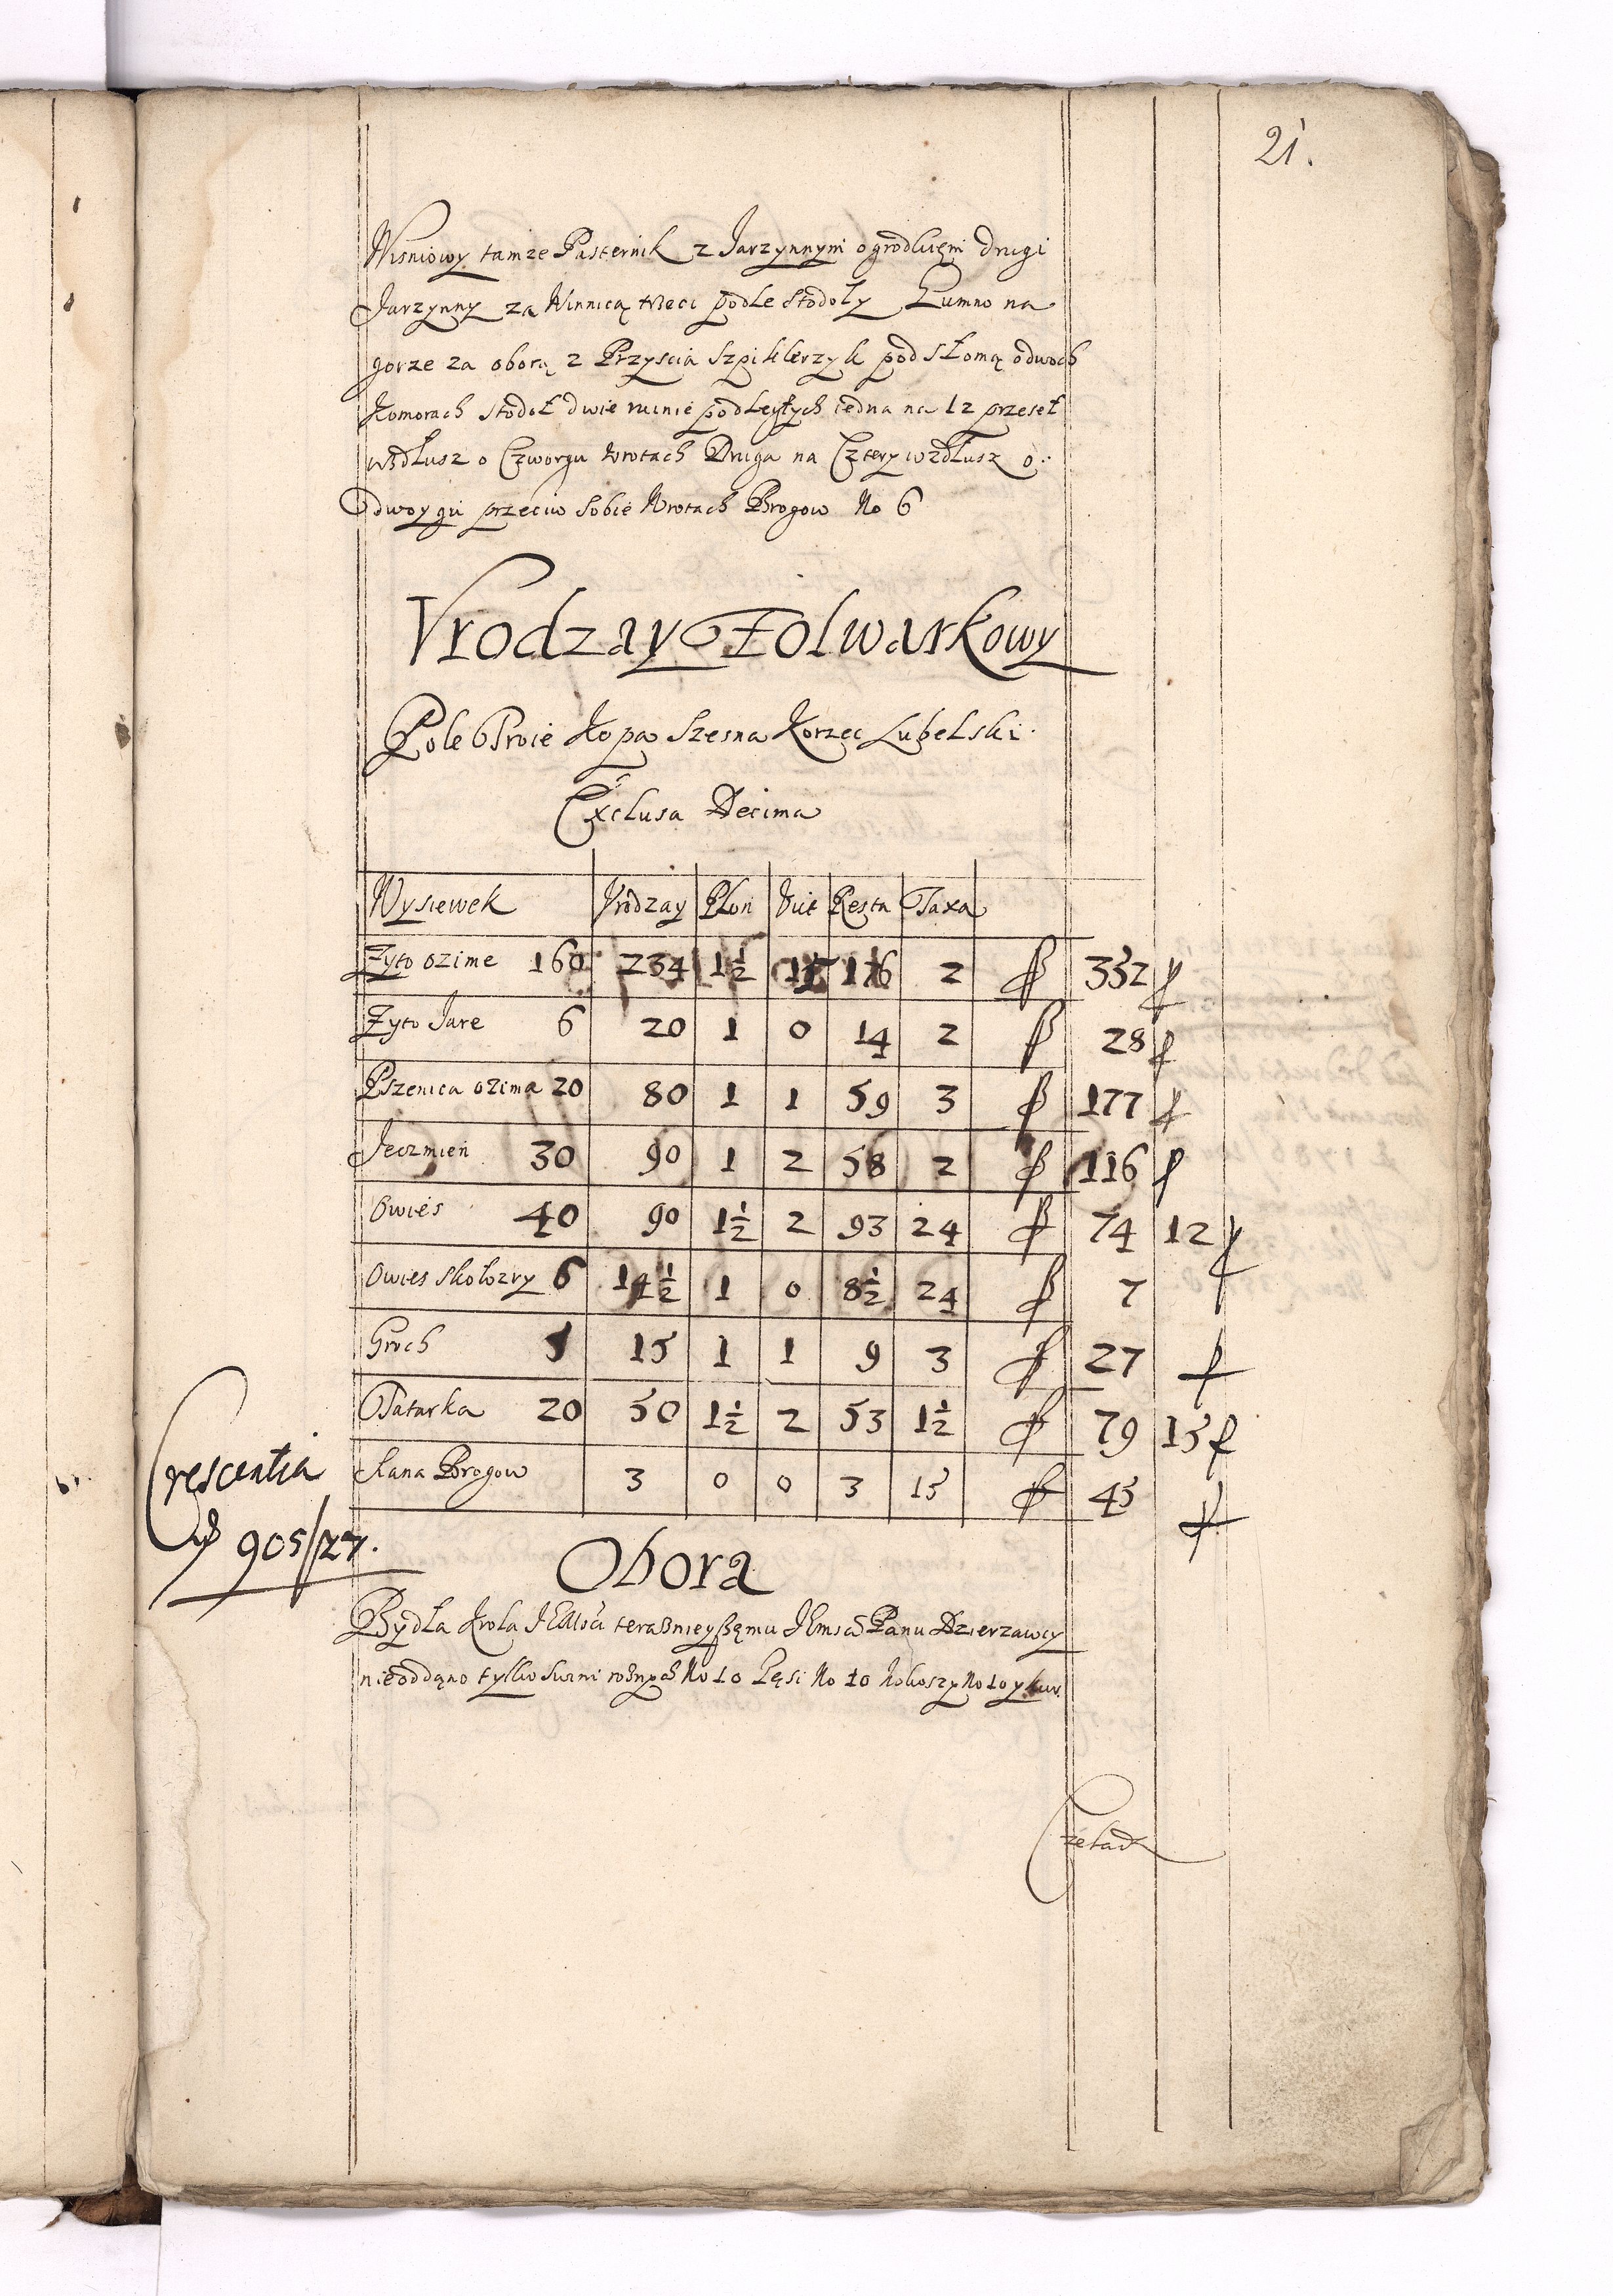 21.
Wisniowy tamze Pasternik z Jarzynnym ogrodkięm drugi
Jarzynny za Winnicą trzeci podle stodoły Gumno na
gorze za oborą z Przyscia Szpiklerzyk pod słomą o dwoch
Komorach stodoł dwie ruinie podległych iedna na 12 przeseł
wzdłusz o Czworgu wrotach Druga na Cztery wzdłusz o
Odwoygu przeciw sobie Wrotach Brogow No 6
Vrodzay Folwarkowy
Pole Troie Kopa Szesna Korzec Lubelski
Exclusa Decima
Wysiewek Vrodzay Plon Vict Resta Taxa
Zyto ozime 160 234 1½ 176 2 f 332
Zyto Jare 6 20 1 0 14 2 f 28
Pszenica ozima 20 80 1 1 59 3 f 177
Jęczmien 30 90 1 2 58 2 f 116
Owies 40 90 1½ 2 93 24 f 74 12
Owies skołozry 6 14½ 1 0 8½ 24 f 7
Groch 5 15 1 1 9 3 f 27
Tatarka 20 50 1½ 2 53 1½ f 79 15
Siana Brogow 3 0 0 3 15 f 45
Crescentia
f 905//27.
Obora
Bydła Krola JEMosci teraznieyszęmu JEmsci Panu Dzierzawcy
nieoddąno tylko Swini roznych No 10 Gęsi No 10 Kokoszy No 10 y kur.
Czeladz